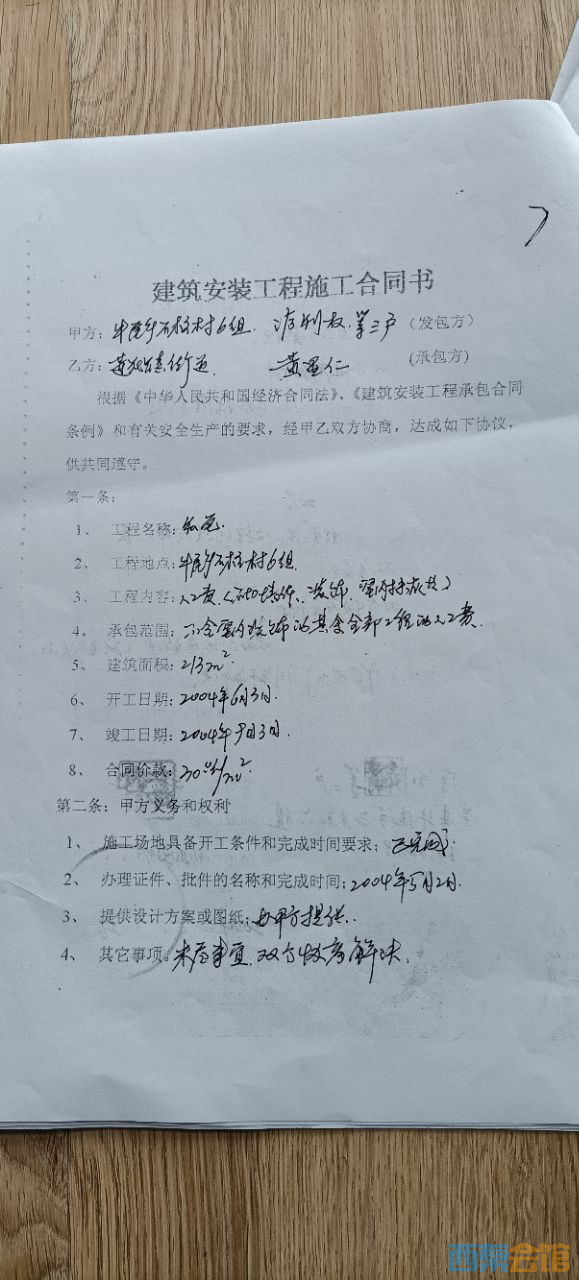 建筑安装工程施工合同书
甲方：石柱村6组（发包方）
乙方：黄 仁（承包方）
根据《中华人民共和国经济合同法》、《建筑安装工程承包合同
条例》和有关安全生产的要求，经甲乙双方协商，达成如下协议，
供共同遵守。
第一条：
1、 工程名称：
2、 工程地点：石柱村6组
3、 工程内容：人工费
4、 承包范围：不含室内装饰的其余全部工程的人工费
5、 建筑面积：213m²
6、 开工日期：2004年6月3日
7、 竣工日期：2004年 月3日
8、 合同价款：
第二条：甲方义务和权利
1、 施工场地具备开工条件和完成时间要求：已完成
2、 办理证件、批件的名称和完成时间：2004年5月2日
3、 提供设计方案或图纸：由甲方提供
4、 其它事项：未尽事宜，双方协商解决
西京会馆